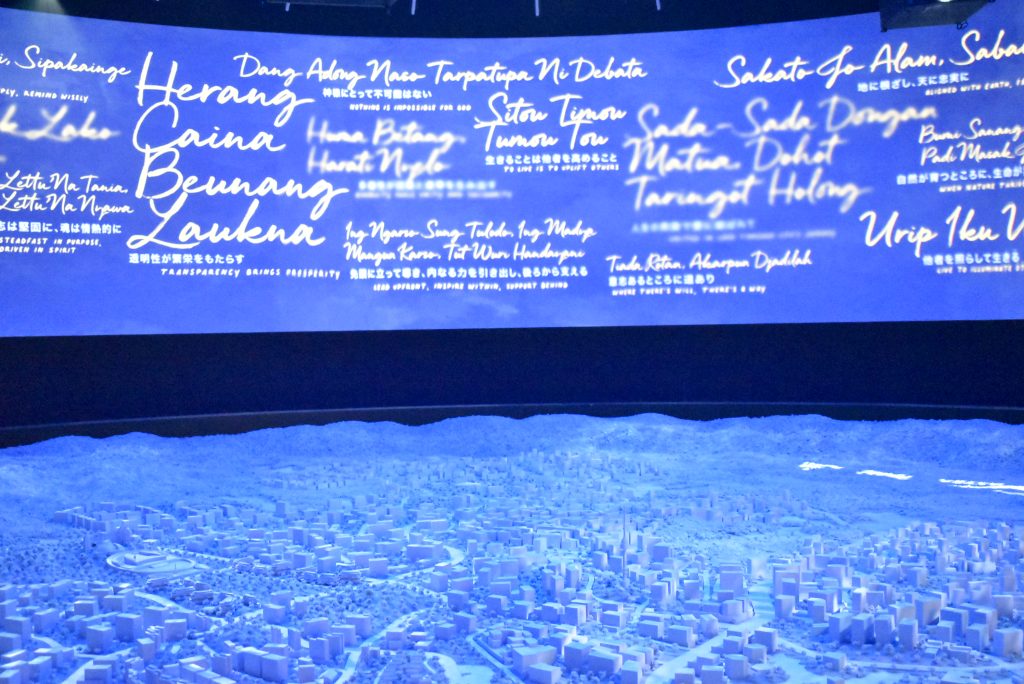 i, Sipakainge
PLY, REMIND WISELY
k Lako
Lettu Na Tania,
Lettu Na Nyawa
志は堅固に、魂は情熱的に
STEADFAST IN PURPOSE,
DRIVEN IN SPIRIT
Herang
Caina
Beunang
Laukna
透明性が繁栄をもたらす
TRANSPARENCY BRINGS PROSPERITY
Dang Adong Naso Tarpatupa Ni Debata
神様にとって不可能はない
NOTHING IS IMPOSSIBLE FOR GOD
Huma Betang,
Harati Nyolo
Sitou Timou
Tumou Tou
生きることは他者を高めること
TO LIVE IS TO UPLIFT OTHERS
Ing Ngarso Sung Tulodo, Ing Madya
Mangun Karso, Tut Wuri Handayani
先頭に立って導き、内なる力を引き出し、後ろから支える
LEAD UPFRONT, INSPIRE WITHIN, SUPPORT BEHIND
Sada-Sada Dongan
Matua, Dohot
Taringot Holong
Tiada Rotan, Akarpun Djadilah
意志あるところに道あり
WHERE THERE'S WILL, THERE'S A WAY
Sakato Jo Alam, Saba
地に根ざし、天に忠実に
ALIGNED WITH EARTH, F
Bumi Sanang
Padi Masak
自然が育つところに、生命が
WHEN NATURE THRIVE
Urip Iku
他者を照らして生きる
LIVE TO ILLUMINATE